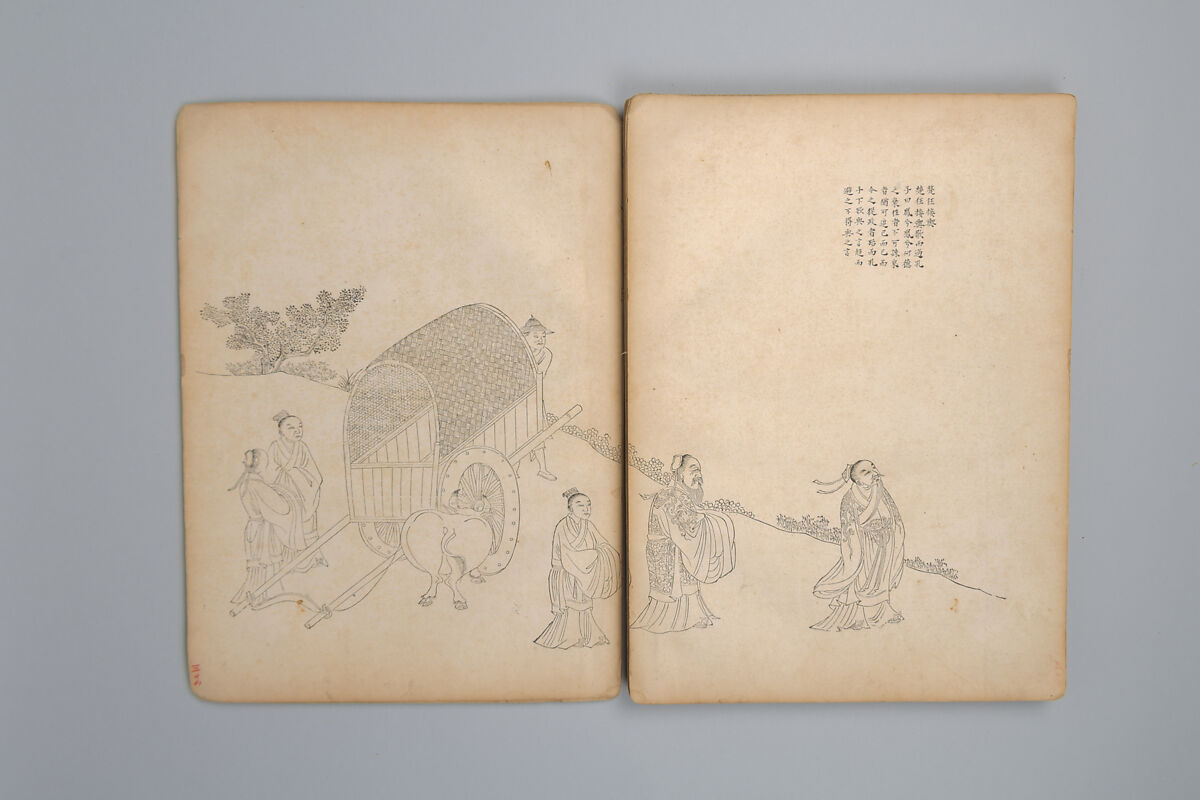 楚狂接輿
楚狂接輿歌而過孔
子曰鳳兮鳳兮何德
之衰往者不可諫來
者猶可追已而已而
今之從政者殆而孔
子下欲與之言趨而
避之不得與之言